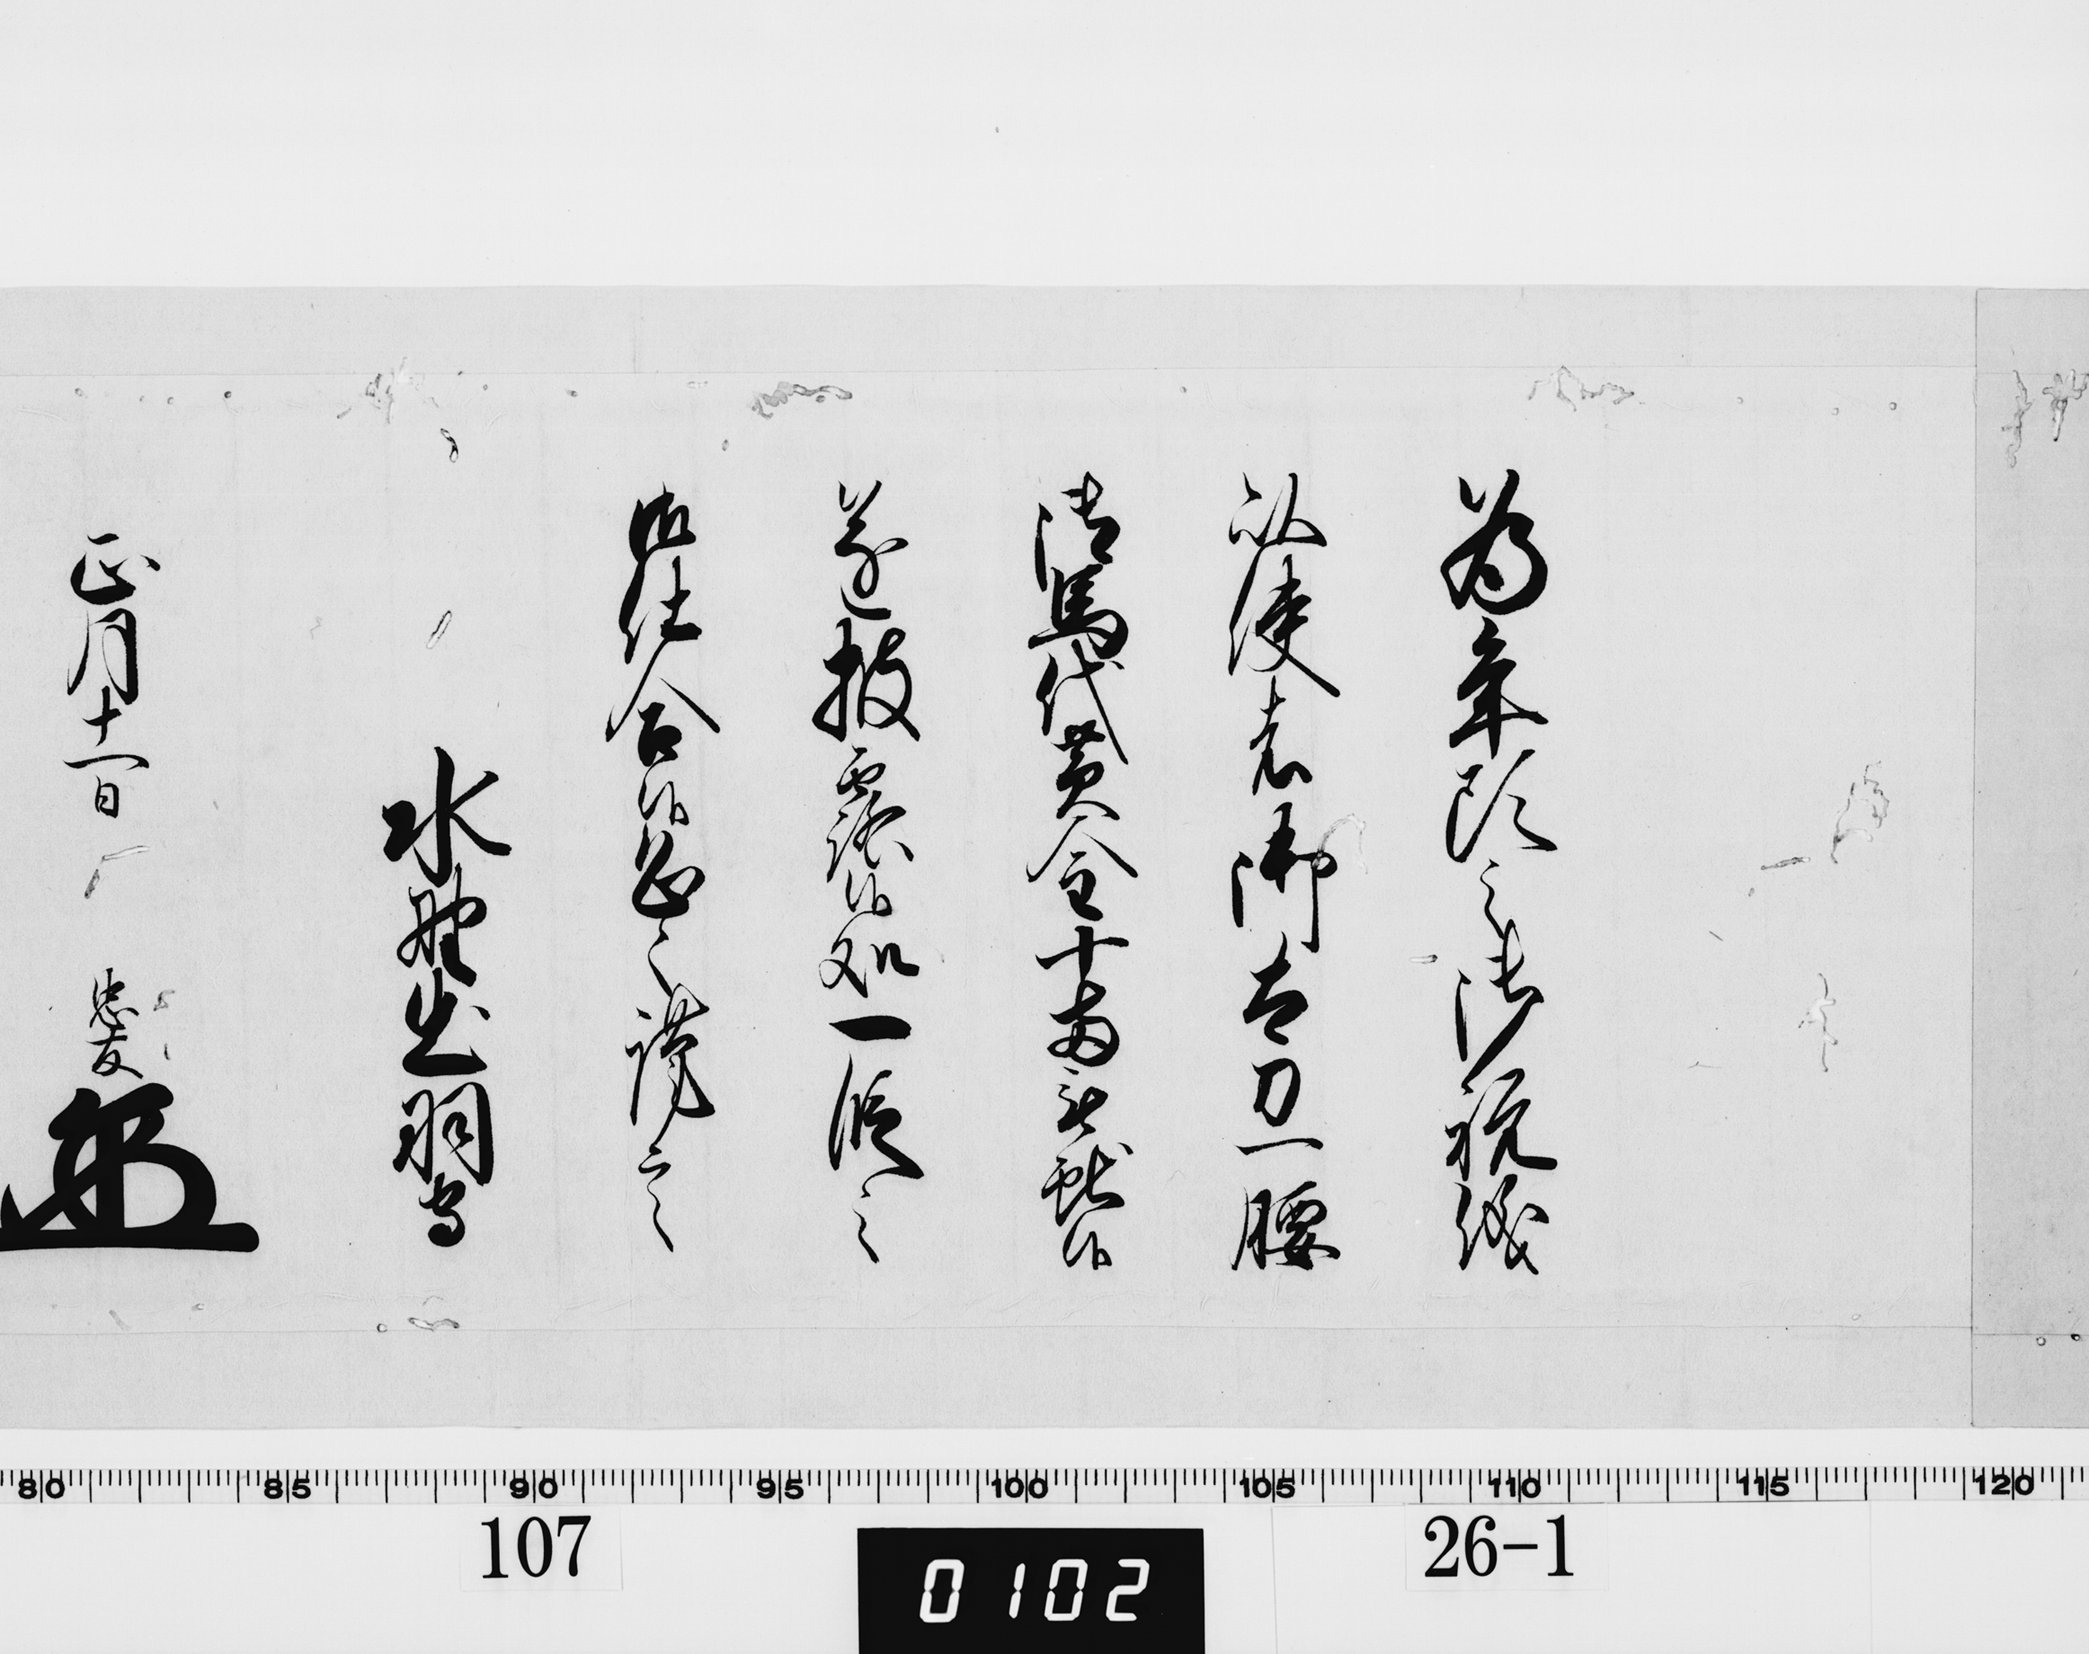 為年頭之御祝儀
以使者御太刀一腰
御馬代黄金十両被献候
遂披露候処一段之
御仕合候恐々謹言
水野出羽守
正月十一日
忠友
80 85 90 95 100 105 110 115 120
107
0102
26-1